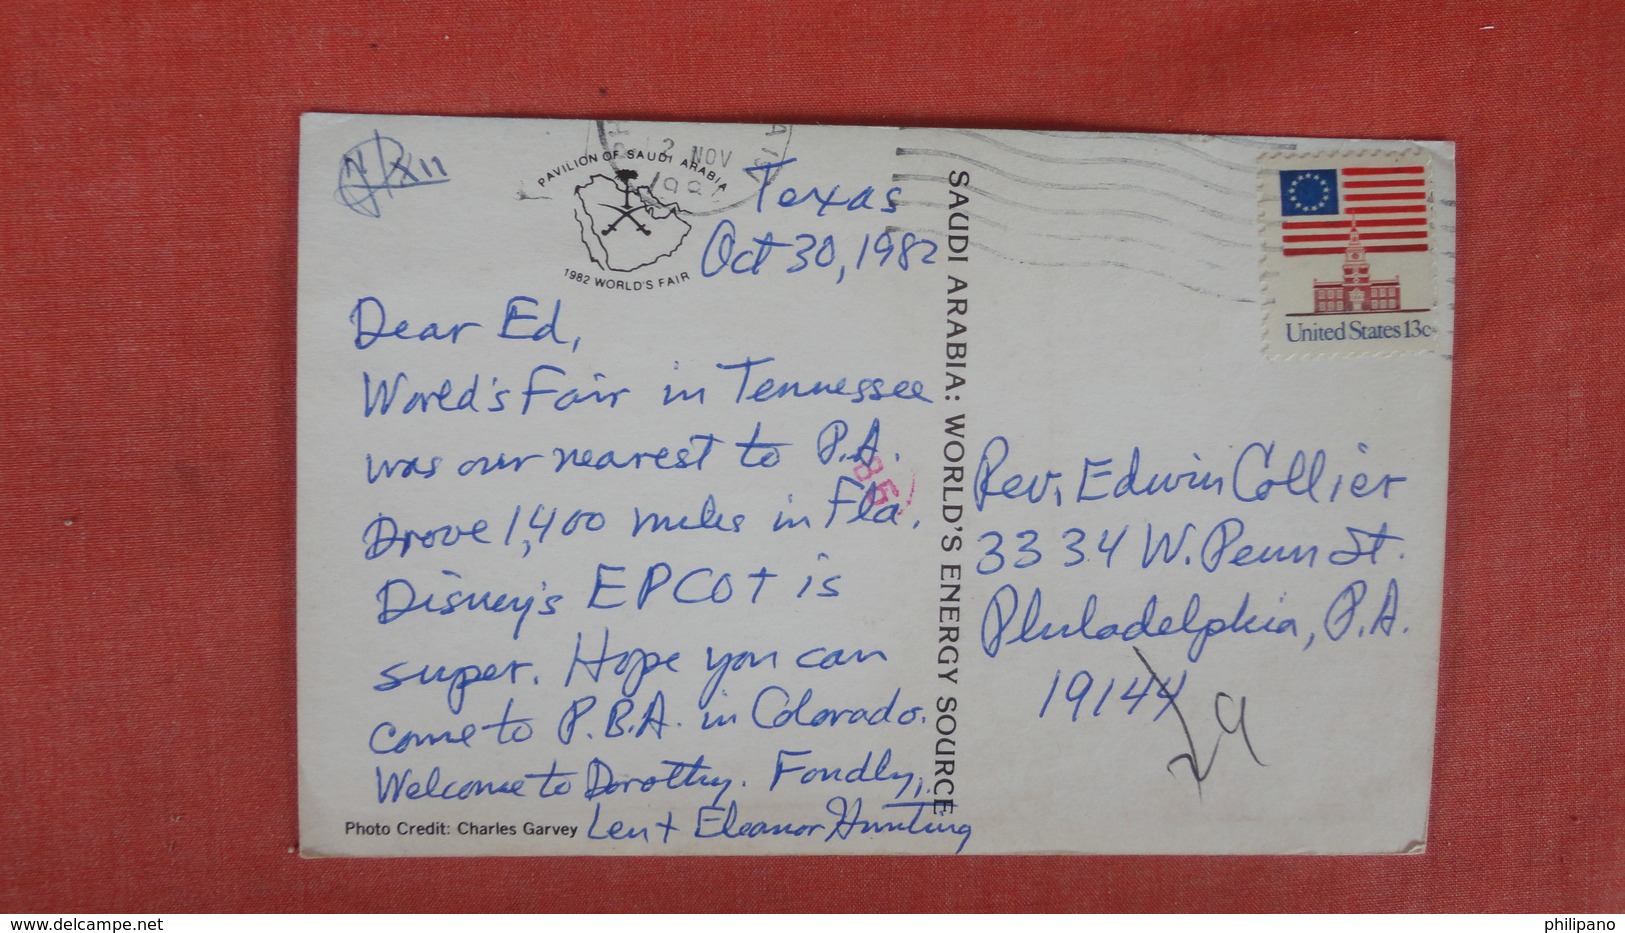 PAVILION OF SAUDI ARABIA
1982 WORLD'S FAIR
2 NOV
Texas
Oct 30, 1982
Dear Ed,
World's Fair in Tennessee
was our nearest to P.A.
Drove 1,400 miles in Fla.
Disney's EPCOT is
super. Hope you can
come to P.B.A. in Colorado.
Welcome to Dorothy. Fondly,
Len + Eleanor Hunting
Photo Credit: Charles Garvey
SAUDI ARABIA: WORLD'S ENERGY SOURCE
United States 13c
Rev. Edwin Collier
3334 W. Penn St.
Philadelphia, P.A.
19144
29
delcampe.net
philipano